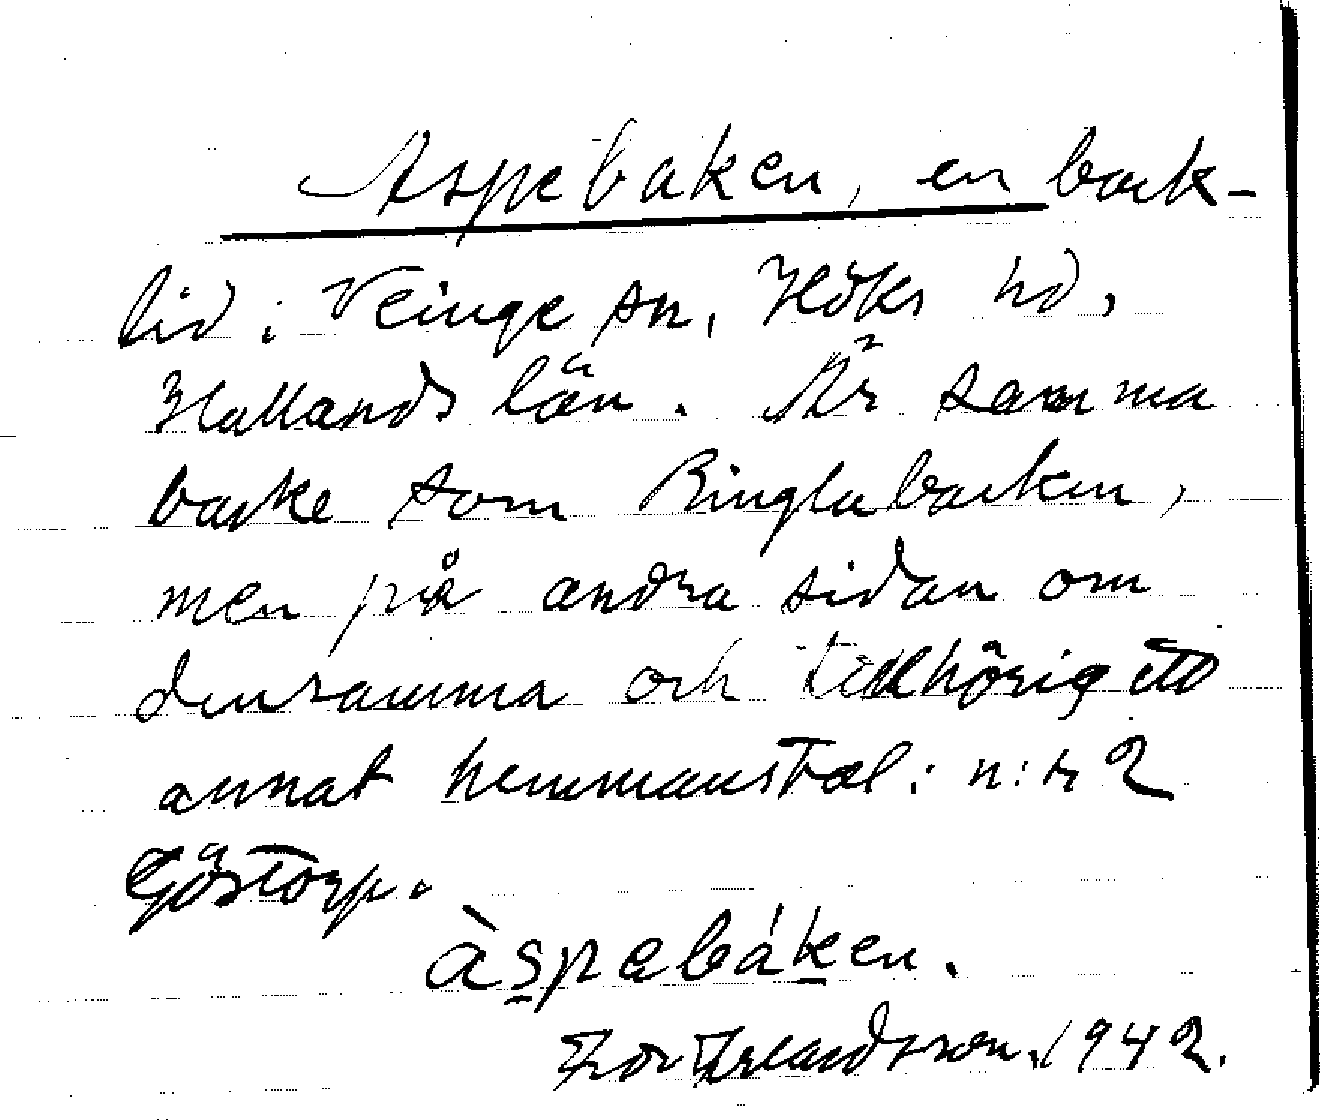 Aspebaken, en back-
lid i Veinge sn, Höks hd,
Hallands län. Är samma
backe som Ringlabacken,
men på andra sidan om
densamma och tillhörig ett
annat hemmanstal: n:r 2
Göstorp.
àspebáken.
Erlandsson. 1942.